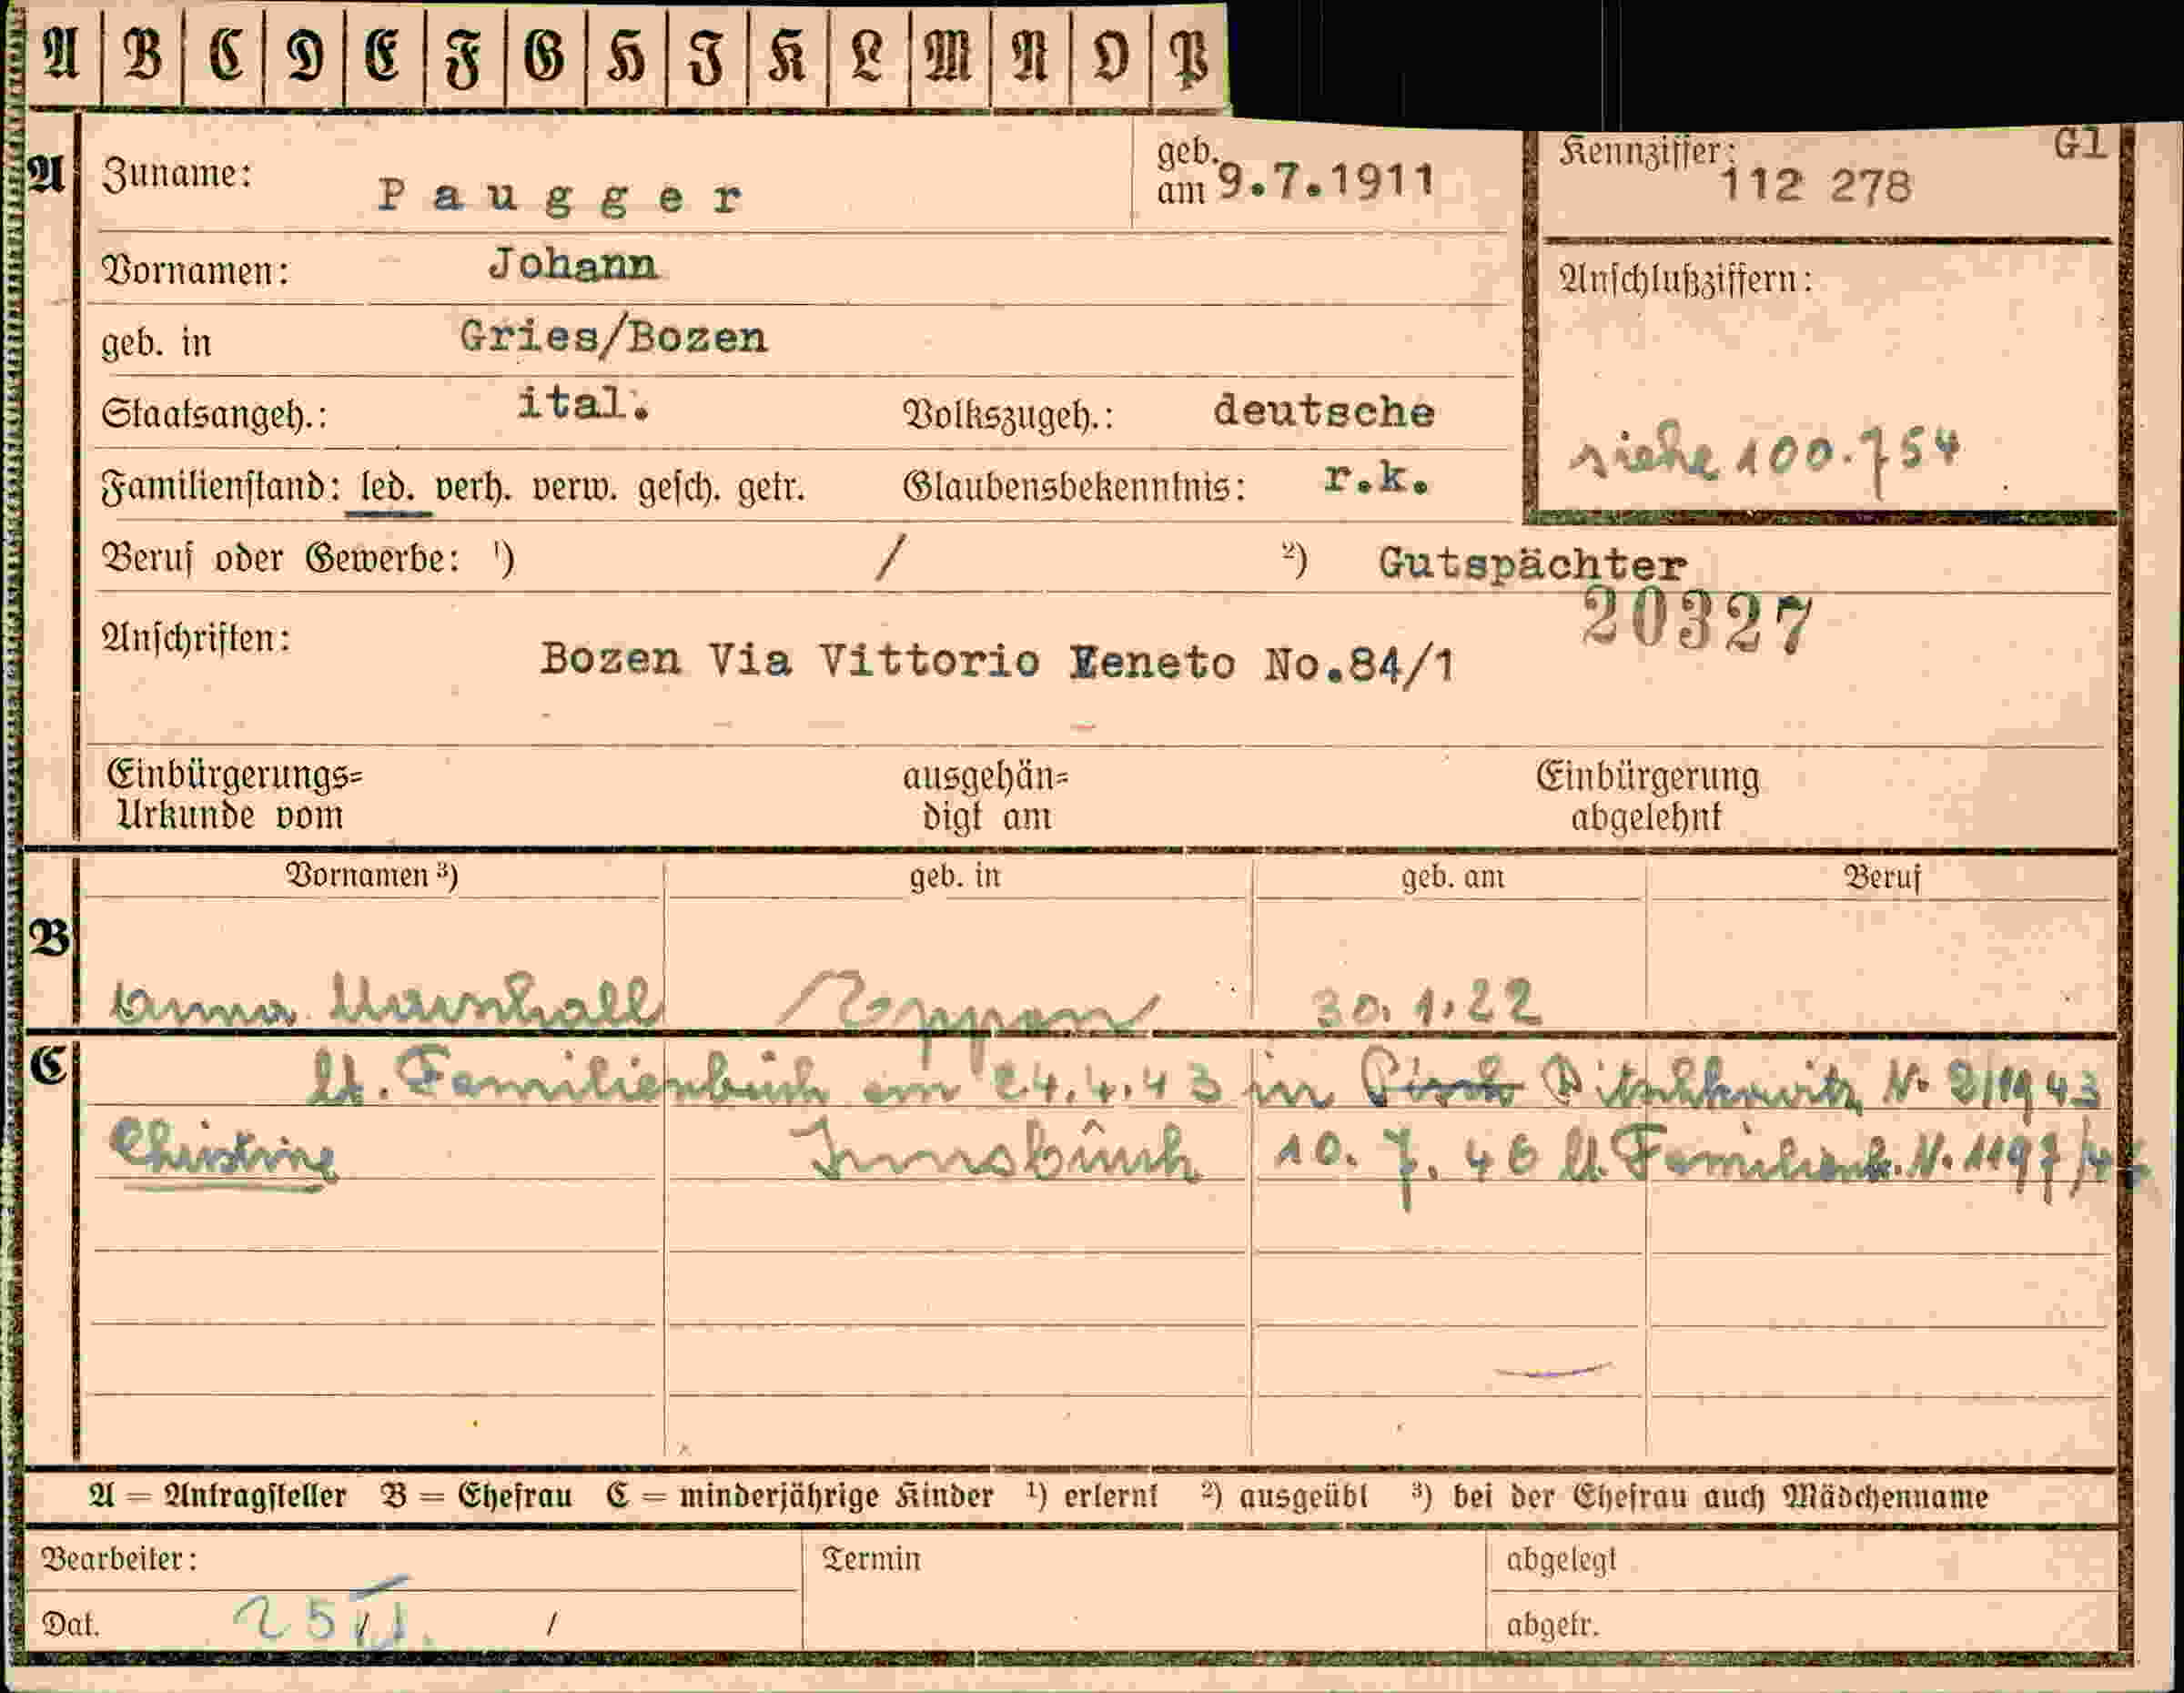 A B C D E F G H I K L M N O P
A Zuname: Paugger geb. am 9.7.1911 Kennziffer: 112 278 Gl
Vornamen: Johann Anschlußziffern:
geb. in Gries/Bozen
Staatsangeh.: ital. Volkszugeh.: deutsche siehe 100.754
Familienstand: led. verh. verw. gesch. getr. Glaubensbekenntnis: r.k.
Beruf oder Gewerbe: ¹) / ²) Gutspächter
20327
Anschriften: Bozen Via Vittorio Veneto No.84/1
Einbürgerungs= ausgehän= Einbürgerung
Urkunde vom digt am abgelehnt
Vornamen ³) geb. in geb. am Beruf
B
Anna Eppan 30.1.22
C lt. Familienbuch am 24.4.43 in Ditschkowitz N. 2/1943
Christine Innsbruck 10.7.46 lt. Familienb. N. 1197/46
A = Antragsteller B = Ehefrau C = minderjährige Kinder ¹) erlernt ²) ausgeübt ³) bei der Ehefrau auch Mädchenname
Bearbeiter: Termin abgelegt
Dat. 25 / / abgetr.